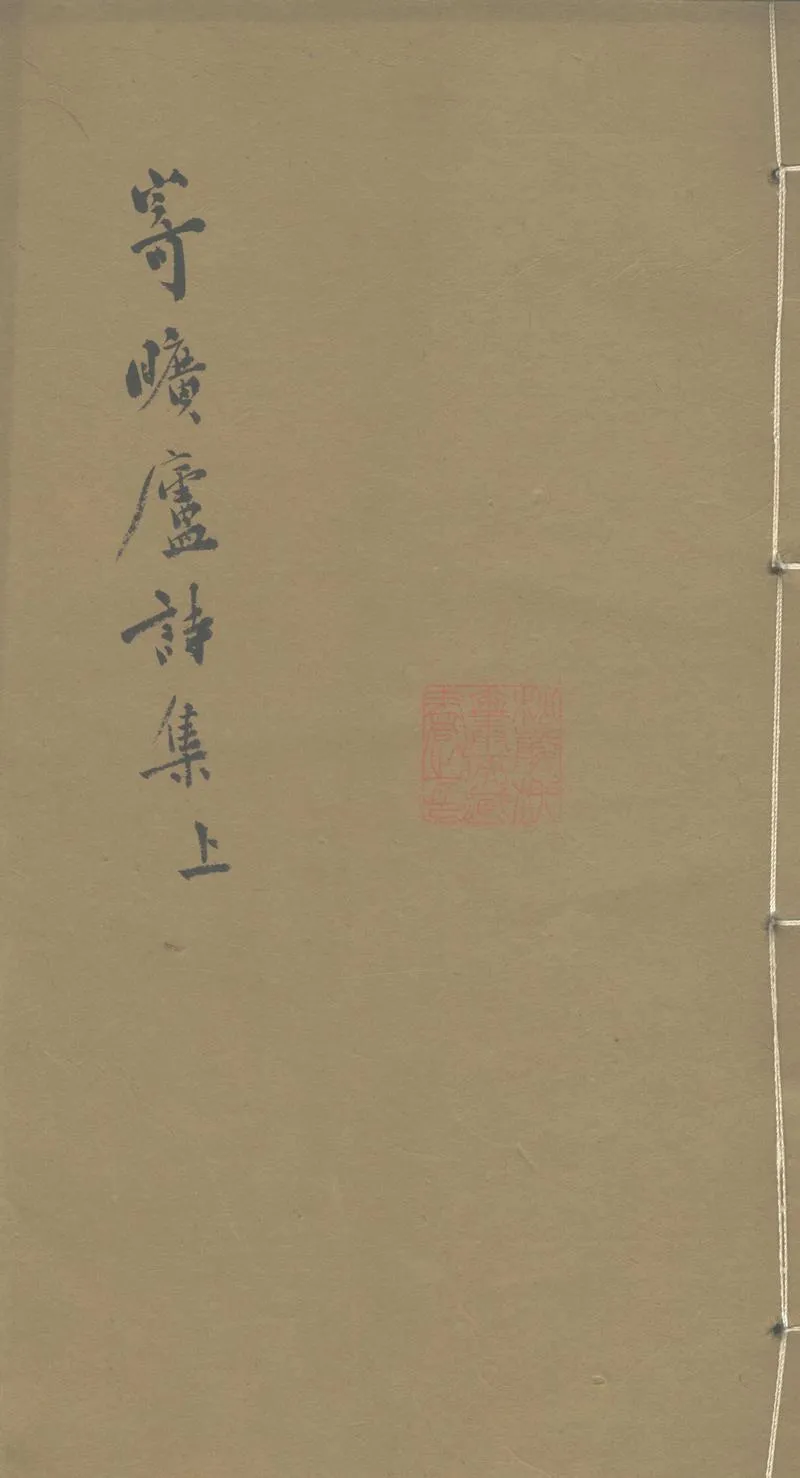 寄曠廬詩集上